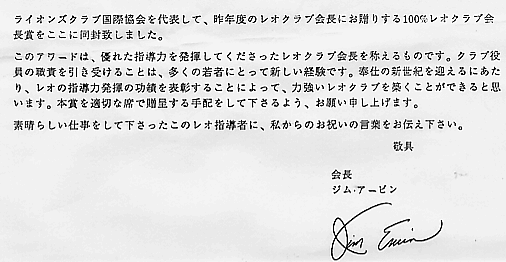 ライオンズクラブ国際協会を代表して、昨年度のレオクラブ会長にお贈りする100%レオクラブ会
長賞をここに同封致しました。
このアワードは、優れた指導力を発揮してくださったレオクラブ会長を称えるものです。クラブ役
員の職責を引き受けることは、多くの若者にとって新しい経験です。奉仕の新世紀を迎えるにあた
り、レオの指導力発揮の功績を表彰することによって、力強いレオクラブを築くことができると思
います。本賞を適切な席で贈呈する手配をして下さるよう、お願い申し上げます。
素晴らしい仕事をして下さったこのレオ指導者に、私からのお祝いの言葉をお伝え下さい。
敬具
会長
ジム・アービン
Jim Ervin